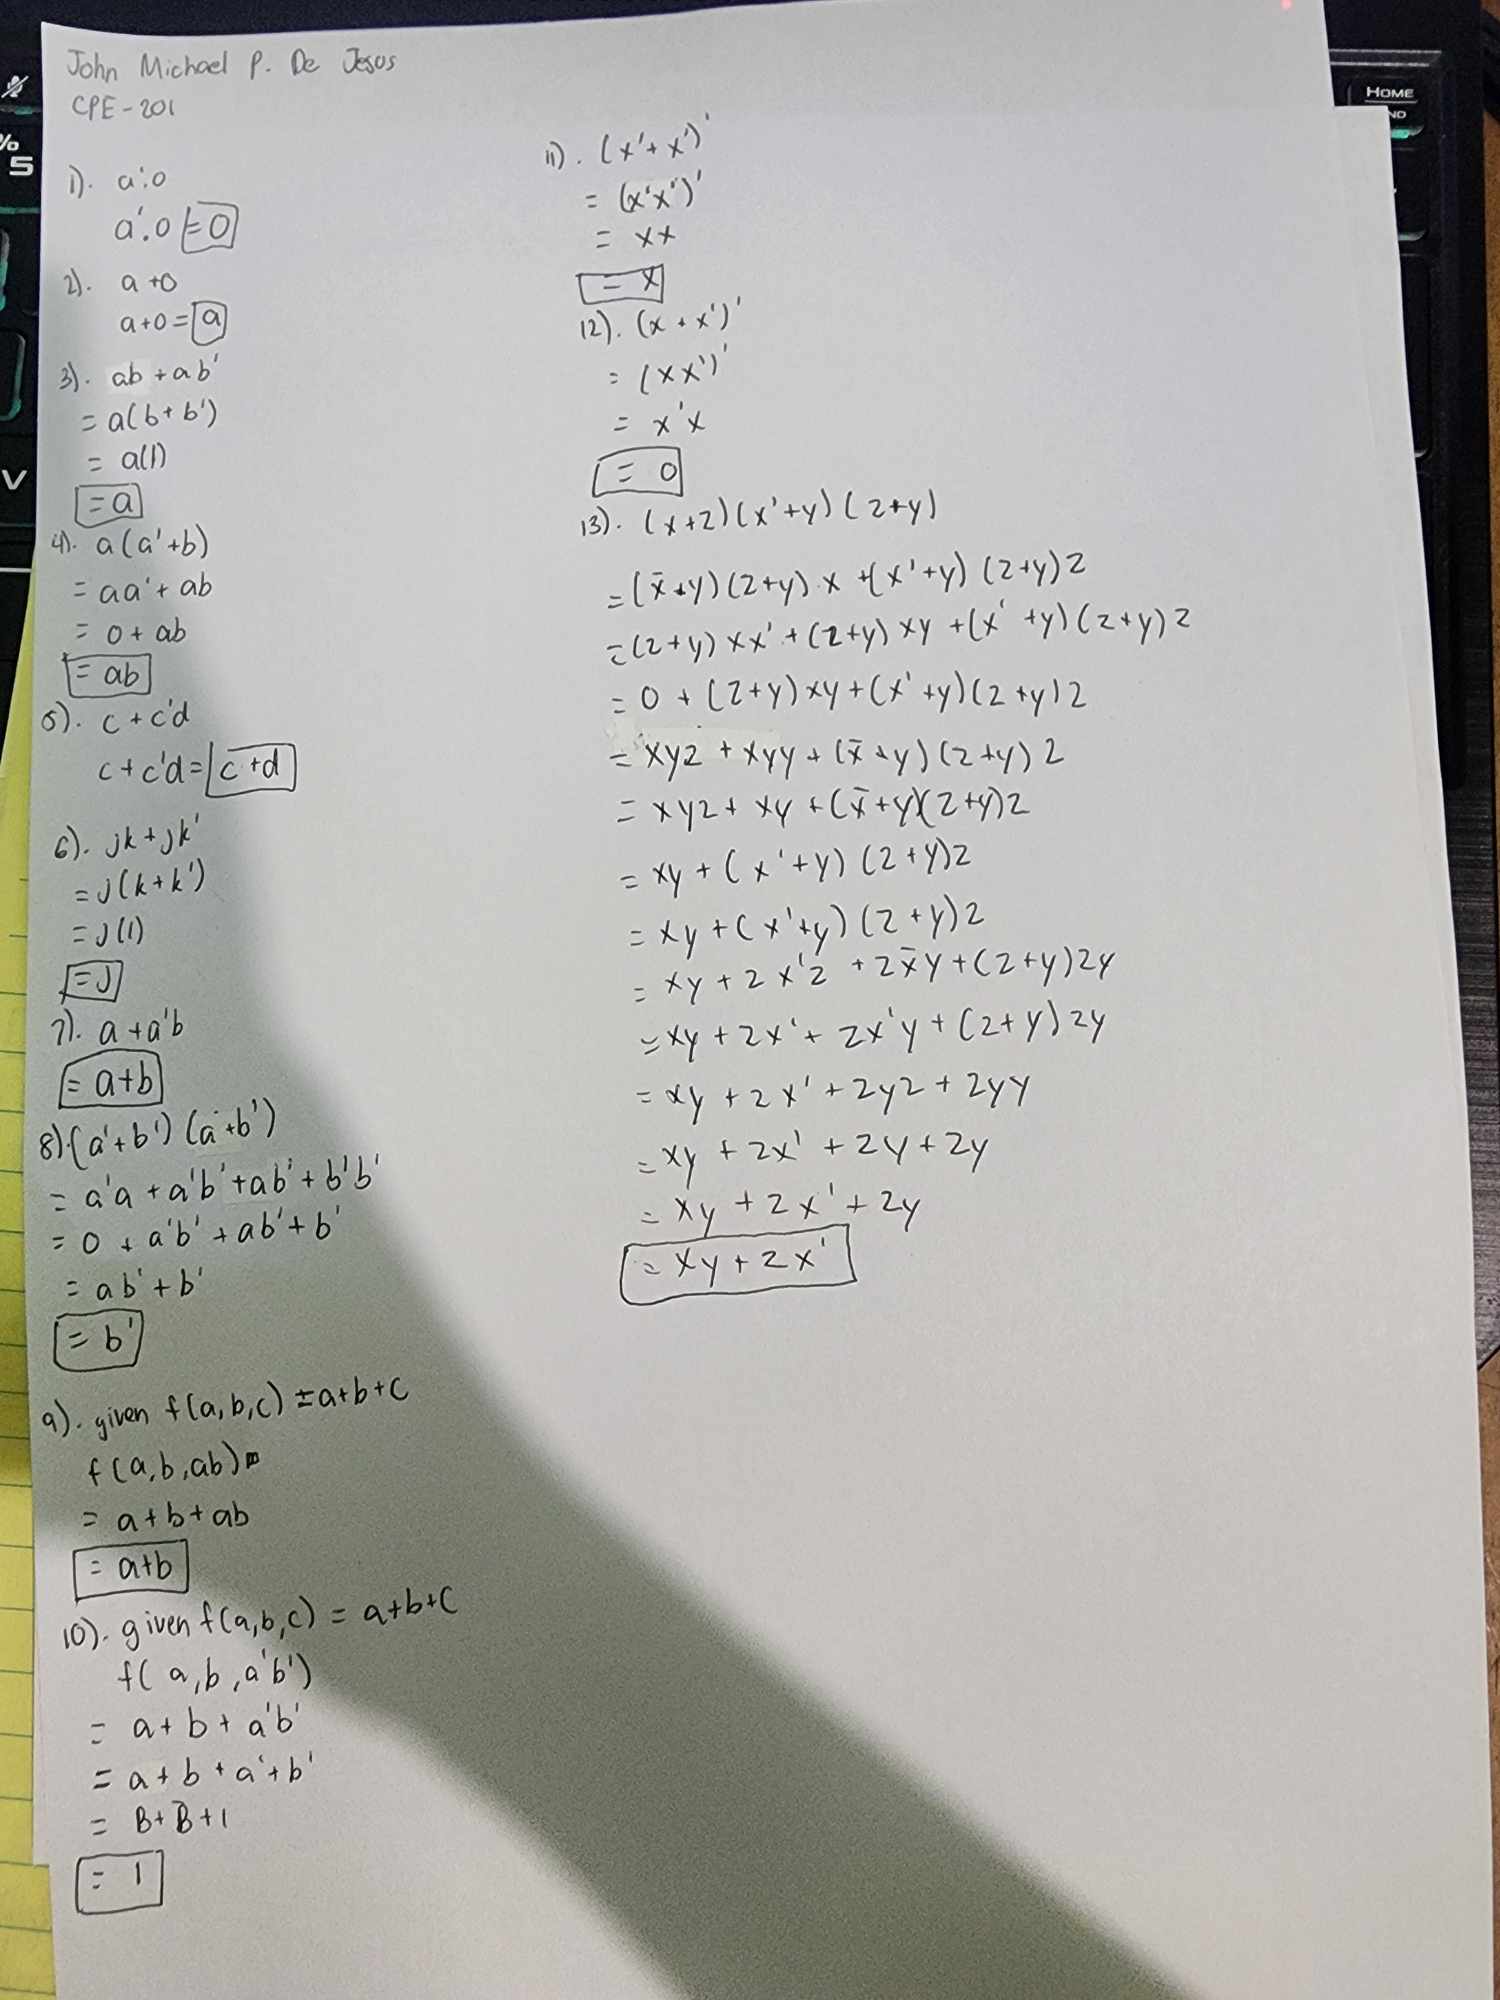 John Michael P. De Jesus
CPE-201
1). a'.0
a'.0 = 0
2). a+0
a+0 = a
3). ab + ab'
= a(b+b')
= a(1)
= a
4). a(a'+b)
= aa' + ab
= 0 + ab
= ab
5). c + c'd
c + c'd = c+d
6). jk + jk'
= j(k+k')
= j(1)
= J
7). a + a'b
= a+b
8). (a'+b') (a+b')
= a'a + a'b' + ab' + b'b'
= 0 + a'b' + ab' + b'
= ab' + b'
= b'
9). given f(a,b,c) = a+b+c
f(a,b,ab)
= a+b+ab
= a+b
10). given f(a,b,c) = a+b+c
f(a,b,a'b')
= a+b+a'b'
= a+b+a'+b'
= B+B̅+1
= 1
11). (x'+x')'
= (x'x')'
= xx
= x
12). (x+x')'
= (xx')'
= x'x
= 0
13). (x+z)(x'+y)(z+y)
= (x̅+y)(z+y)x + (x'+y)(z+y)z
= (z+y)xx' + (z+y)xy + (x'+y)(z+y)z
= 0 + (z+y)xy + (x'+y)(z+y)z
= xyz + xyy + (x̅+y)(z+y)z
= xyz + xy + (x̅+y)(z+y)z
= xy + (x'+y)(z+y)z
= xy + (x'+y)(z+y)z
= xy + zx'z + zx̅y + (z+y)zy
= xy + zx' + zx'y + (z+y)zy
= xy + zx' + zyz + zyy
= xy + zx' + zy + zy
= xy + zx' + zy
= xy + zx'
HOME
%
5
V